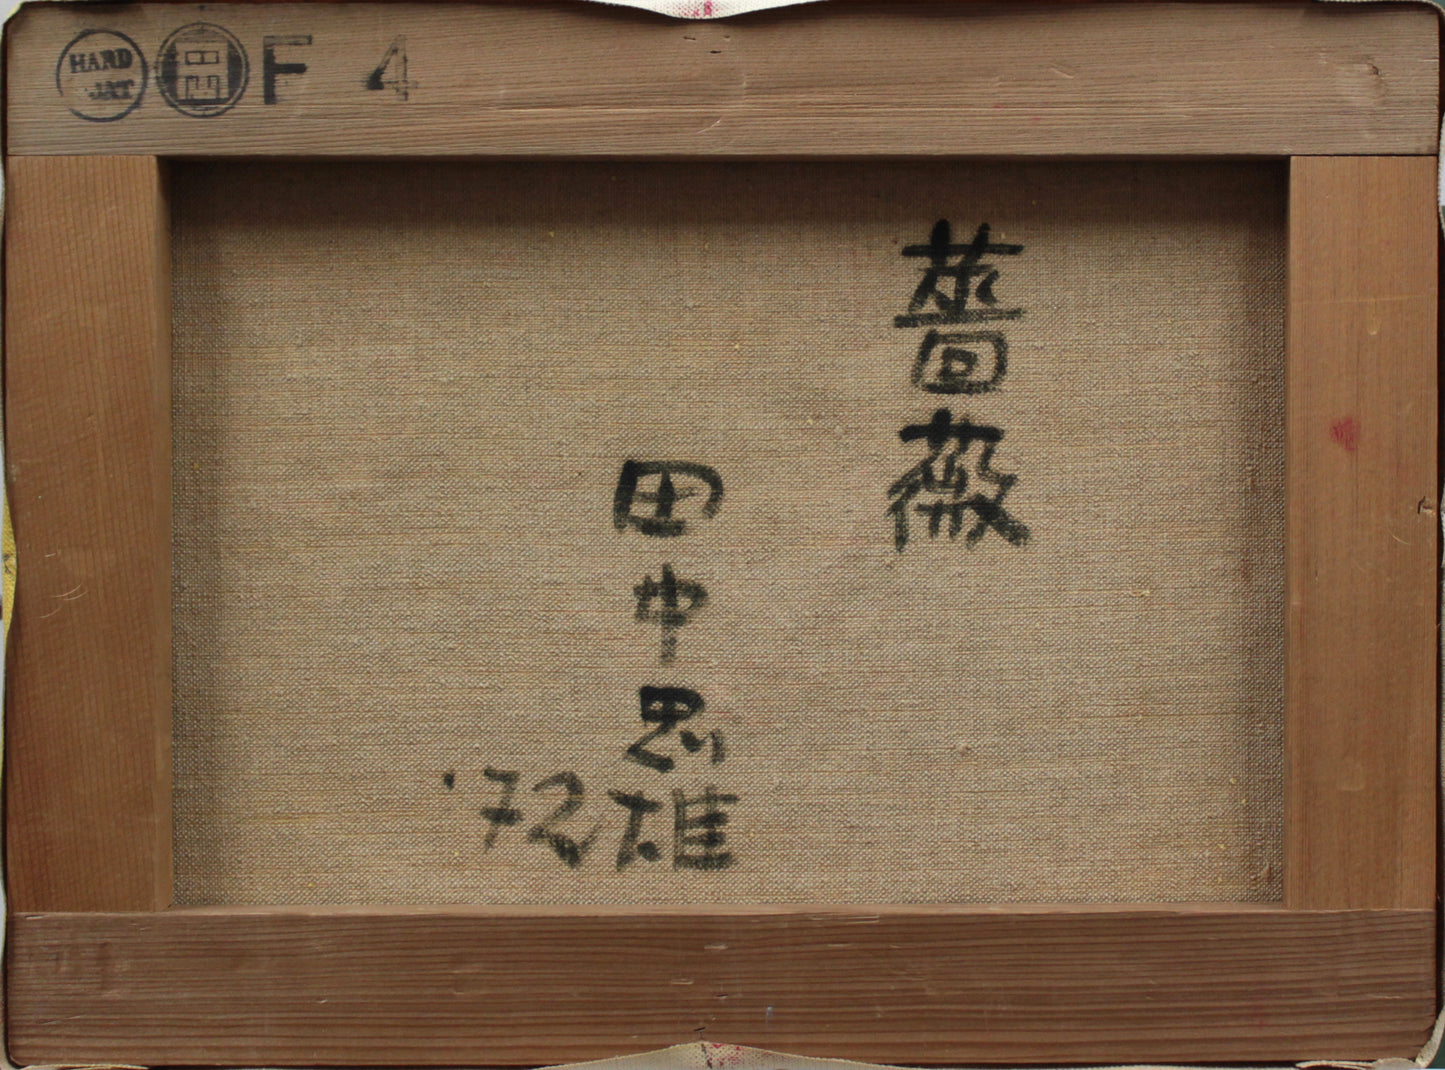 HARD
F 4
薔薇
田中忠雄
'72